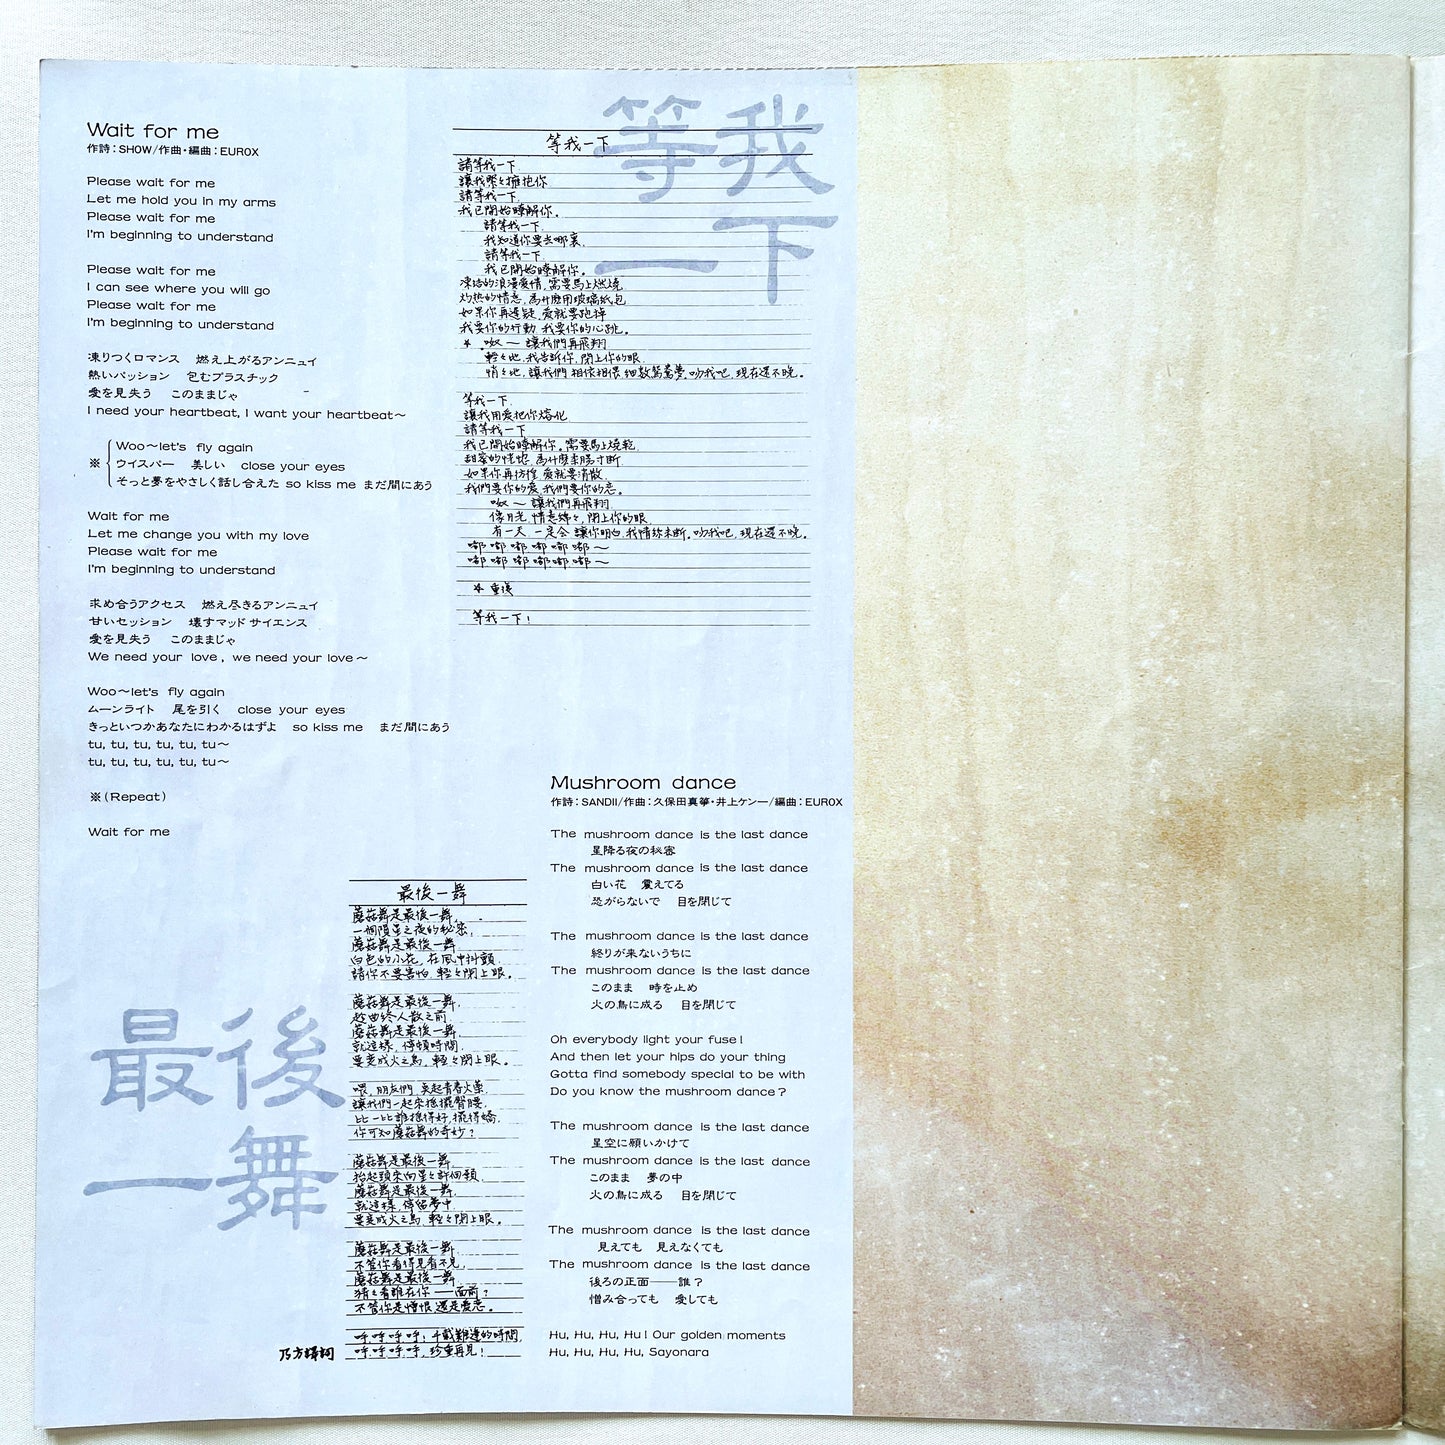 Wait for me
作詩：SHOW/作曲・編曲：EUROX
Please wait for me
Let me hold you in my arms
Please wait for me
I'm beginning to understand
Please wait for me
I can see where you will go
Please wait for me
I'm beginning to understand
凍りつくロマンス　燃え上がるアンニュイ
熱いパッション　包むプラスチック
愛を見失う　このままじゃ
I need your heartbeat, I want your heartbeat〜
Woo〜let's fly again
※ ウイスパー　美しい　close your eyes
そっと夢をやさしく話し合えた so kiss me まだ間にあう
Wait for me
Let me change you with my love
Please wait for me
I'm beginning to understand
求め合うアクセス　燃え尽きるアンニュイ
甘いセッション　壊すマッド サイエンス
愛を見失う　このままじゃ
We need your love, we need your love〜
Woo〜let's fly again
ムーンライト　尾を引く　close your eyes
きっといつかあなたにわかるはずよ　so kiss me　まだ間にあう
tu, tu, tu, tu, tu, tu〜
tu, tu, tu, tu, tu, tu〜
※(Repeat)
Wait for me
等我
一下
等我一下
請等我一下
讓我緊々擁抱你
請等我一下
我已開始瞭解你。
請等我一下
我知道你要去哪裏
請等我一下
我已開始瞭解你。
凍結的浪漫愛情,需要馬上燃燒
灼热的情意,為什麼用玻璃紙包
如果你再遲疑,愛就要跑掉
我要你的行動 我要你的心跳。
* 呶〜 讓我們再飛翔
輕々地,我告訴你,閉上你的眼
悄々地,讓我們相依相偎 細數鴛鴦夢,吻我吧,現在還不晚。
等我一下
讓我用愛把你熔化
請等我一下
我已開始瞭解你。需要馬上燒乾
甜蜜的恍惚,為什麼柔腸寸斷
如果你再彷徨,愛就要消散
我們要你的愛,我們要你的戀。
呶〜 讓我們再飛翔
像月光,情意綿々,閉上你的眼
有一天,一定會讓你明白,我情絲未斷。吻我吧,現在還不晚。
嘟 嘟 嘟 嘟 嘟 嘟〜
嘟 嘟 嘟 嘟 嘟 嘟〜
* 重複
等我一下!
Mushroom dance
作詩：SANDII/作曲：久保田真箏・井上ケン一/編曲：EUROX
The mushroom dance is the last dance
星降る夜の秘密
The mushroom dance is the last dance
白い花　震えてる
恐がらないで　目を閉じて
The mushroom dance is the last dance
終りが来ないうちに
The mushroom dance is the last dance
このまま　時を止め
火の鳥に成る　目を閉じて
Oh everybody light your fuse!
And then let your hips do your thing
Gotta find somebody special to be with
Do you know the mushroom dance?
The mushroom dance is the last dance
星空に願いかけて
The mushroom dance is the last dance
このまま　夢の中
火の鳥に成る　目を閉じて
The mushroom dance is the last dance
見えても　見えなくても
The mushroom dance is the last dance
後ろの正面——誰？
憎み合っても　愛しても
Hu, Hu, Hu, Hu! Our golden moments
Hu, Hu, Hu, Hu, Sayonara
最後一舞
蘑菇舞是最後一舞,
一個隕星之夜的秘密,
蘑菇舞是最後一舞
白色的小花,在風中抖顫
請你不要害怕,輕々閉上眼。
蘑菇舞是最後一舞,
趁曲終人散之前
蘑菇舞是最後一舞
就這樣,停頓時間
要變成火之鳥,輕々閉上眼。
喂,朋友們,莫起青春火藥
讓我們一起來搖擺臀腰
比一比誰搖得好,擺得嬌
你可知蘑菇舞的奇妙?
蘑菇舞是最後一舞
抬起頭來向星々許個願
蘑菇舞是最後一舞
就這樣,停留夢中
要變成火之鳥,輕々閉上眼。
蘑菇舞是最後一舞
不管你看得見看不見,
蘑菇舞是最後一舞
猜々看誰在你——面前?
不管你是憎恨還是愛戀。
呼,呼,呼,呼!千載難逢的時間,
呼,呼,呼,呼,珍重再見!
乃方譯詞
最後
一舞